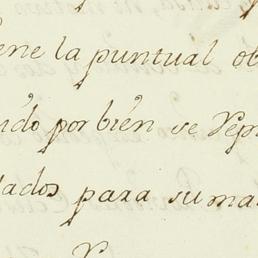 ene la puntual ob
ido por bien se rep
lados para su ma